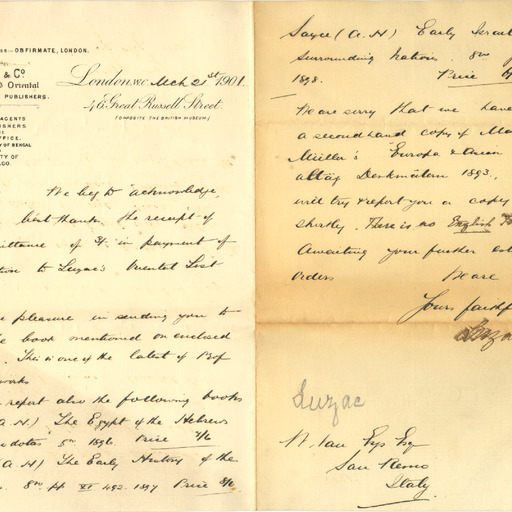 :- OBFIRMATE, LONDON.
& Co
Oriental
PUBLISHERS.
AGENTS
OFFICE.
OF BENGAL
&
TY OF
GO.
London, W.C. Mch 21st 1901.
46, Great Russell Street.
(OPPOSITE THE BRITISH MUSEUM)
We beg to acknowledge,
best thanks, the receipt of
ittance of 3/- in payment of
tion to Luzac's Oriental List
e pleasure in sending you to
e book mentioned on enclosed
. This is one of the latest of Prof
works
report also the following books
A.H) The Egypt of the Hebrews
dotos 8vo 1896. Price 7/6
(A.H) The Early History of the
s. 8vo pp XV 492. 1897 Price 8/6
Sayce (A.H) Early Israel
surrounding Nations 8vo
1898. Price
We are sorry that we have
a secondhand copy of Max
Müller's Europa & Asien
altäg Denkmälern 1893.,
will try & report you a copy
shortly. There is no English
Awaiting your further
orders
We are
Yours faithf
Luzac
Luzac
Esq
San Remo
Italy.